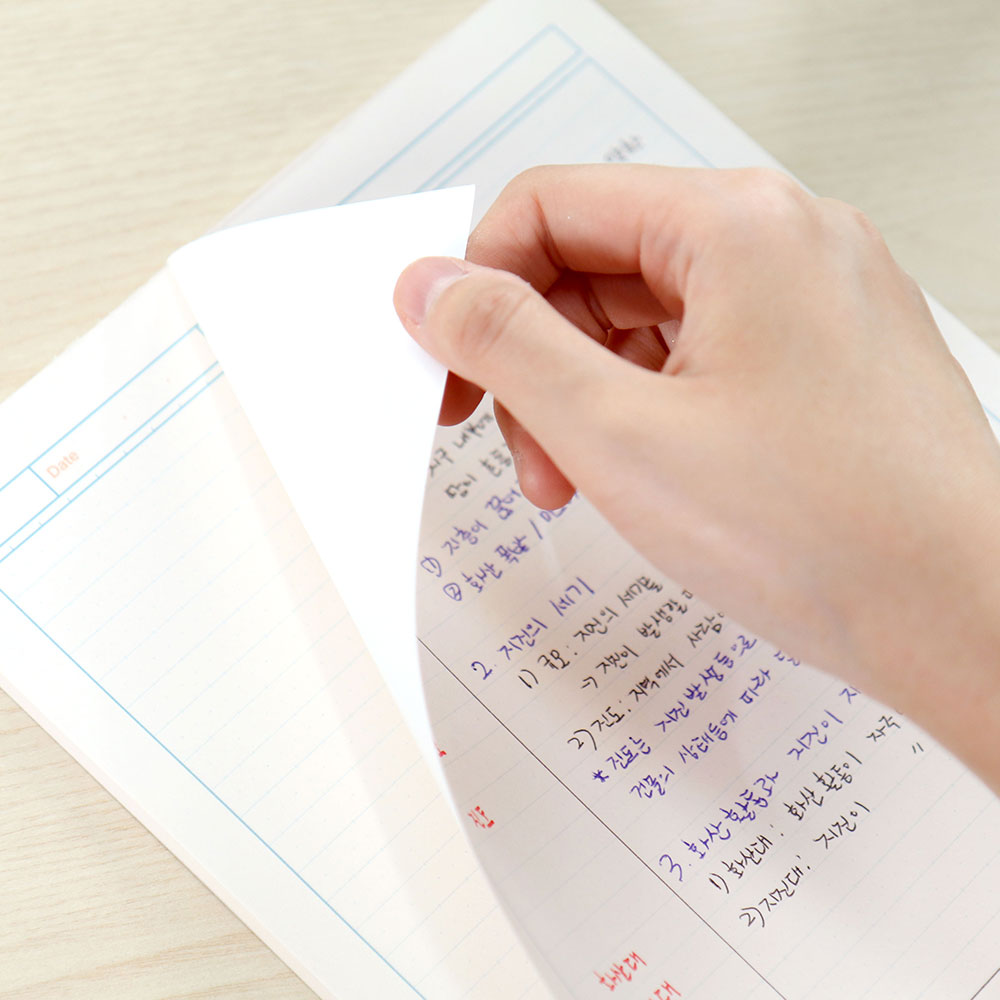 Date
지구 내부에
땅이 흔들
① 지층이 끊어
② 화산 폭발 /
2. 지진의 세기
1) 규모 : 지진의 세기를
→ 지진이 발생할
2) 진도 : 지역에서 사람
* 진도는 지진 발생 등으로
건물의 상태 등에 따라 달
3. 화산 활동과 지진이 자
1) 화산대 : 화산 활동이 자주
2) 지진대 : 지진이 "
진도
화산대
대